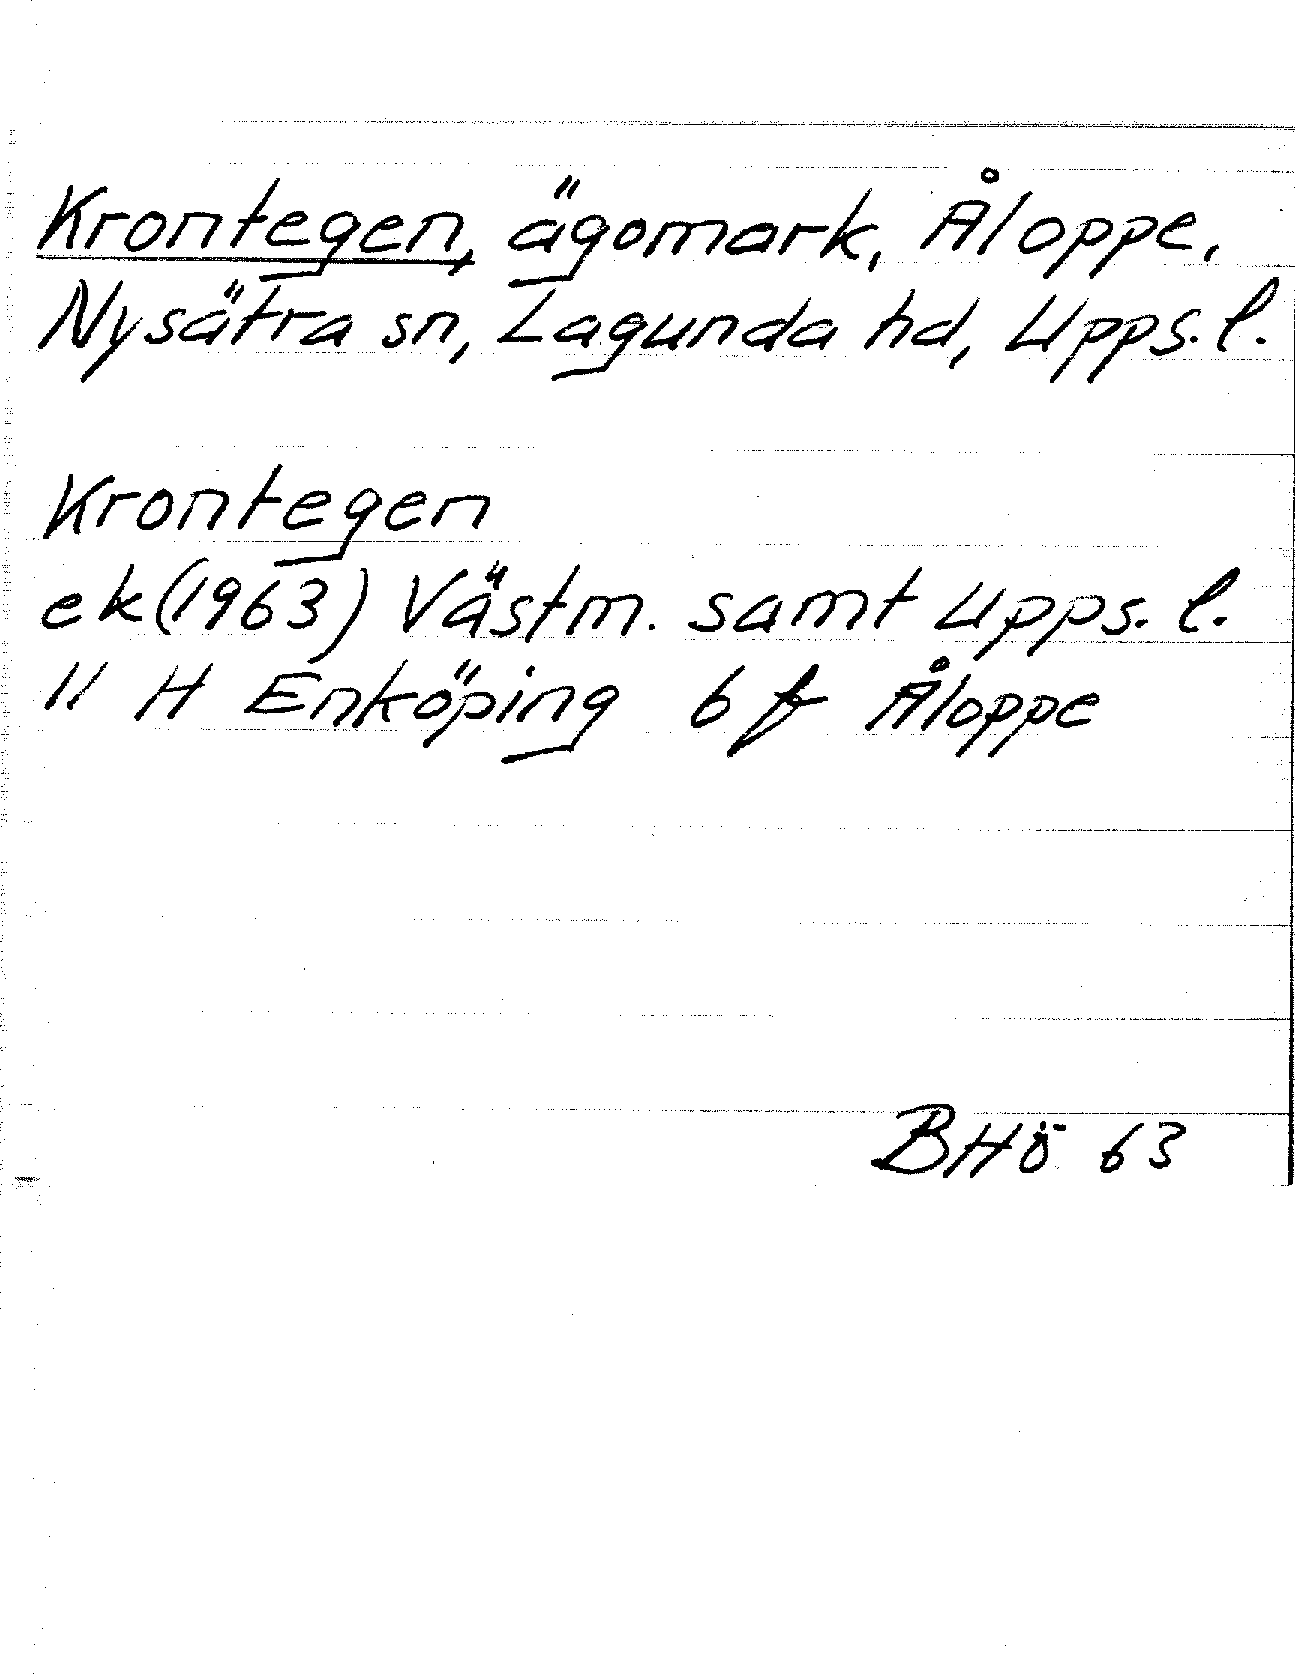 Krontegen, ägomark, Åloppe,
Nysätra sn, Lagunda hd, Upps. l.
Krontegen
ek (1963) Västm. samt Upps. l.
11 H Enköping 6 f Åloppe
BHö 63